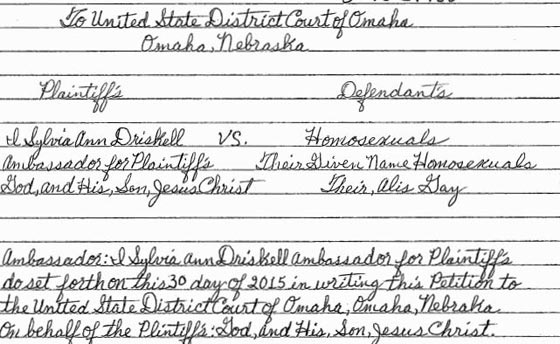 To United State District Court of Omaha
Omaha, Nebraska
Plaintiff's Defendant's
I Sylvia Ann Driskell VS. Homosexuals
Ambassador for Plaintiff's Their Given Name Homosexuals
God, and His, Son, Jesus Christ Their, Alis Gay
Ambassador: I Sylvia Ann Driskell Ambassador for Plaintiff's
do set forth on this 30 day of 2015 in writing this Petition to
the United State District Court of Omaha, Omaha, Nebraka.
On behalf of the Plintiff's: God, and His, Son, Jesus Christ.